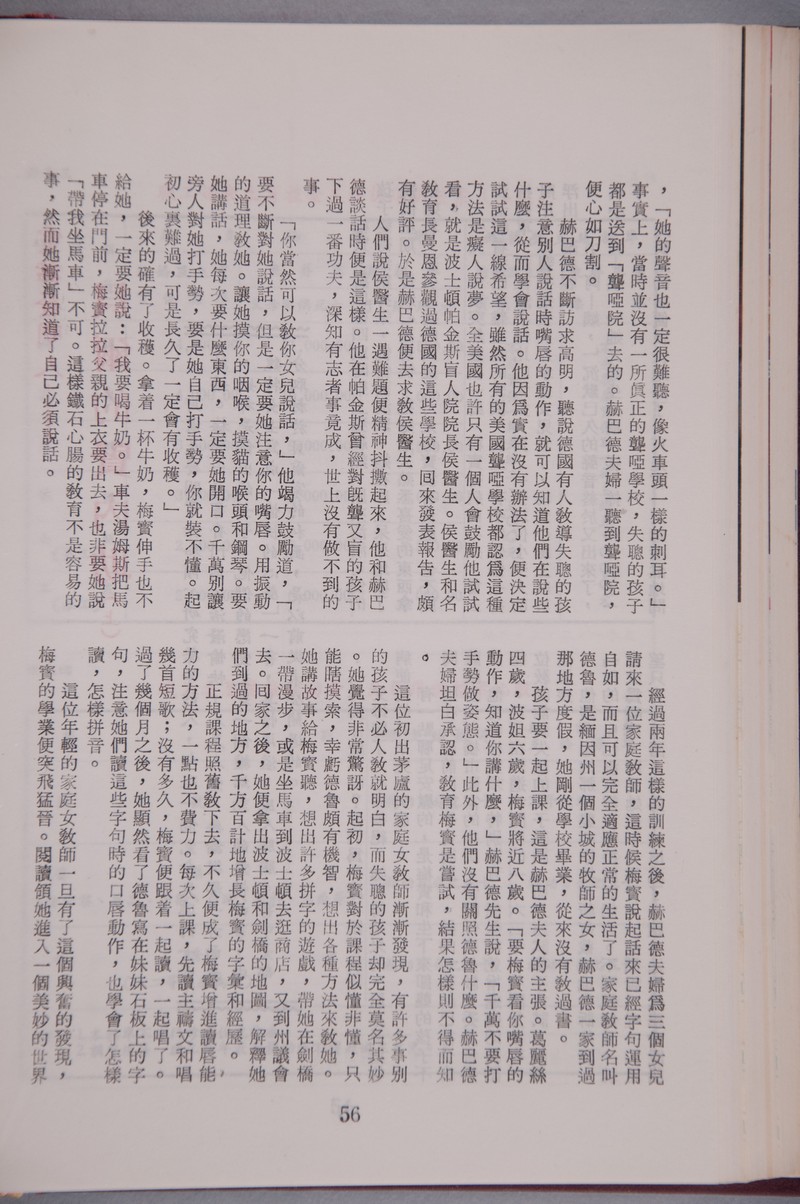 ，「她的聲音也一定很難聽，像火車頭一樣的刺耳。」
事實上，當時並沒有一所眞正的聾啞學校，失聰的孩子
都是送到「聾啞院」去的。赫巴德夫婦一聽到聾啞院，
便心如刀割。
赫巴德不斷訪求高明，聽說德國有人敎導失聰的孩
子注意別人說話時嘴唇的動作，就可以知道他們在說些
什麼，從而學會說話。他因爲實在沒有辦法了，便決定
試試這一線希望，雖然所有的美國聾啞學校都認爲這種
方法是癡人說夢。全美國也許只有一個人會鼓勵他試試
看，就是波士頓帕金斯盲人院院長侯醫生。侯醫生和名
敎育長曼恩參觀過德國的這些學校，囘來發表報告，頗
有好評。於是赫巴德便去求敎侯醫生。
人們說侯醫生一遇難題便精神抖擻起來，他和赫巴
德談話時便是這樣。他在帕金斯曾經對旣聾又盲的孩子
下過一番功夫，深知有志者事竟成，世上沒有做不到的
事。
「你當然可以敎你女兒說話，」他竭力鼓勵道，「
要不斷對她說話，但是一定要她注意你的嘴唇。用振動
的道理敎她。讓她摸你的咽喉，摸貓的喉頭和鋼琴。要
她講話，她每次要什麼東西，一定要她開口。千萬別讓
旁人對她打手勢，要是她自己打手勢，你就裝不懂。起
初心裏難過，可是長久了一定會有收穫。」
後來的確有了收穫。拿着一杯牛奶，梅寳伸手也不
給她，一定要她說：「我要喝牛奶。」車夫湯姆斯把馬
車停在門前，梅寳拉拉父親的上衣要出去，也非要她說
「帶我坐馬車」不可。這樣鐵石心腸的敎育不是容易的
事，然而她漸漸知道了自己必須說話。
經過兩年這樣的訓練之後，赫巴德夫婦爲三個女兒
請來一位家庭敎師，這時候梅寳說起話來已經字句運用
自如，而且可以完全適應正常的生活了。家庭敎師名叫
德魯，是緬因州一個小城的牧師之女，赫巴德一家到過
那地方度假，她剛從學校畢業，從來沒有敎過書。
孩子要一起上課，這是赫巴德夫人的主張。葛麗絲
四歲，波姐六歲，梅寳將近八歲。「要梅寳看你嘴唇的
動作，知道你講什麼，」赫巴德先生說，「千萬不要打
手勢做姿態。」此外，他們沒有關照德魯什麼。赫巴德
夫婦坦白承認，敎育梅寳是嘗試，結果怎樣則不得而知
。
這位初出茅廬的家庭女敎師漸漸發現，有許多事別
的孩子不必人敎就明白，而失聰的孩子却完全莫名其妙
。她覺得非常驚訝。起初，梅寳對於課程似懂非懂，只
能瞎摸索，幸虧德魯頗有機智，想出各種方法來敎她。
她講故事給梅寳聽，想出許多拼字的遊戲，帶她在劍橋
一帶漫步，或是坐馬車到波士頓去逛商店，又到州議會
去。囘家之後，她便拿出波士頓和劍橋的地圖，解釋她
們到過的地方，千方百計地增長梅寳的字彙和經歷。
正規課程照舊敎下去，不久便成了梅寳增進讀唇能
力的方法，一點也不費力。每次上課，先讀主禱文和唱
幾首短歌；沒有多久，梅寳便跟着一起讀，一起唱了。
過了幾個月之後，她顯然看了德魯寫在妹妹石板上的字
句，注意她們讀這些字句時的口唇動作，也學會了怎樣
讀，怎樣拼音。
這位年輕的家庭女敎師一旦有了這個興奮的發現，
梅寳的學業便突飛猛晉。閱讀領她進入一個美妙的世界
56